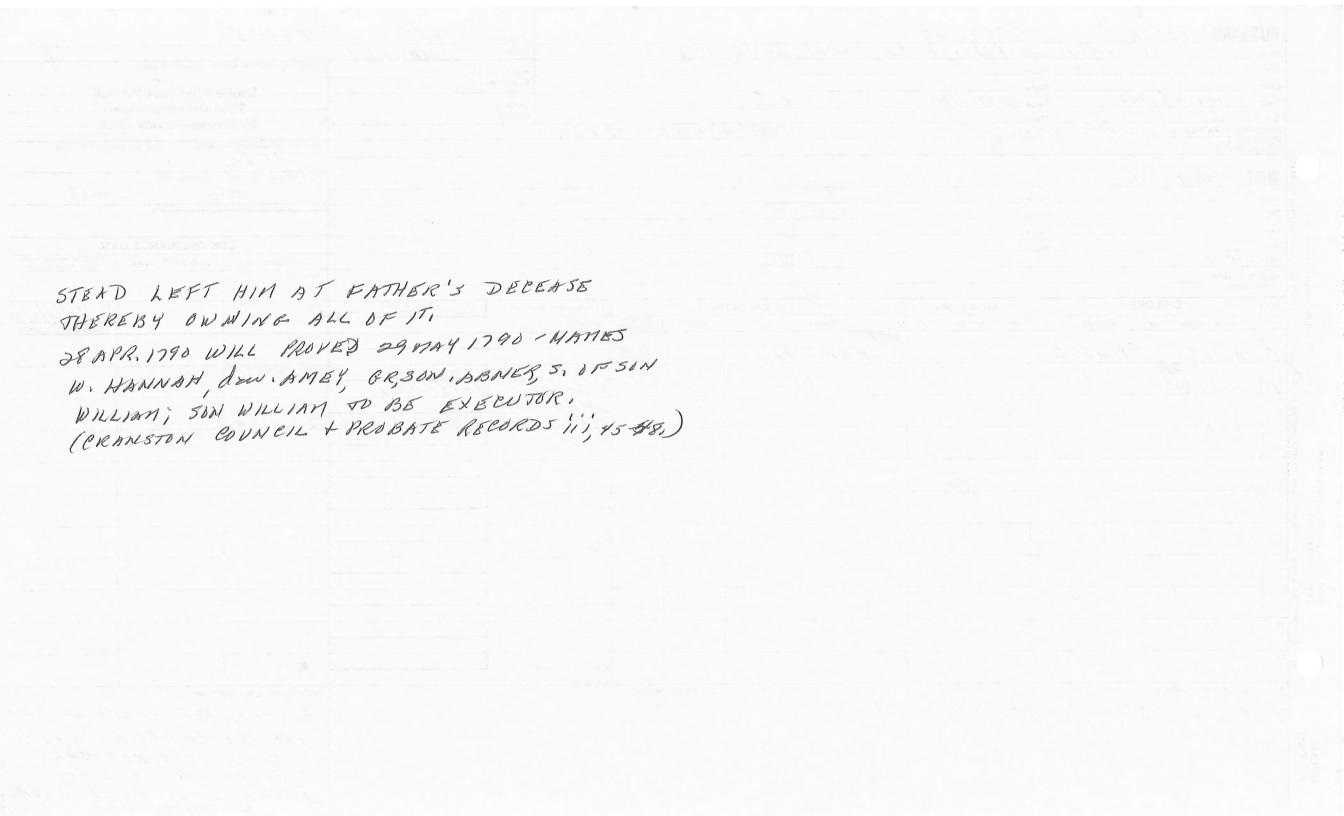 STEAD LEFT HIM AT FATHER'S DECEASE
THEREBY OWNING ALL OF IT.
28 APR. 1790 WILL PROVED 29 MAY 1790 - NAMES
W. HANNAH, dau. AMEY, GR,SON. ABNER, S. OF SON
WILLIAM; SON WILLIAM TO BE EXECUTOR.
(CRANSTON COUNCIL + PROBATE RECORDS iii, 45-48.)